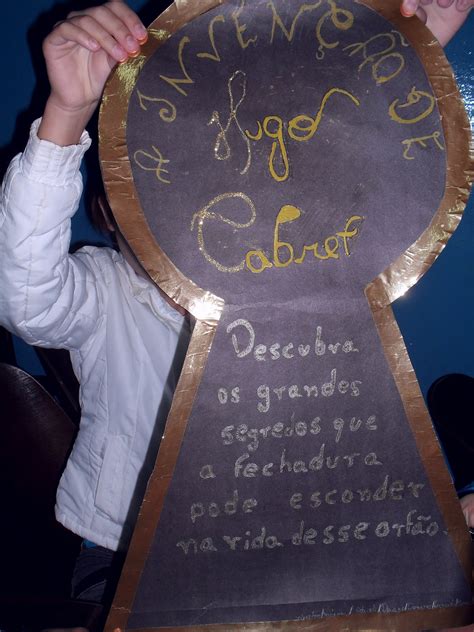 A INVENÇÃO DE
Hugo
Cabret
Descubra
os grandes
segredos que
a fechadura
pode esconder
na vida desse orfão.